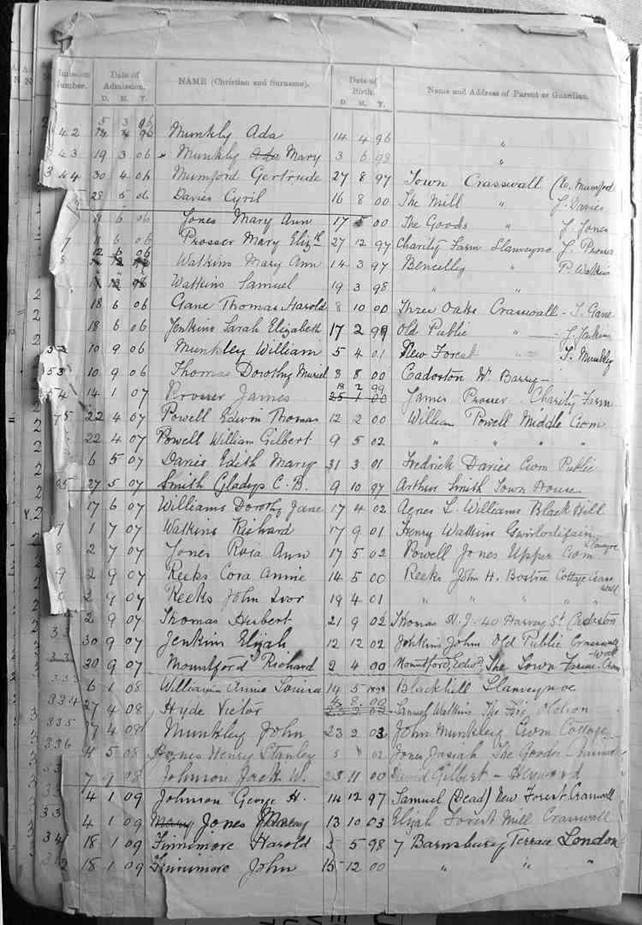 Number. Date of Admission. NAME (Christian and Surname). Date of Birth. Name and Address of Parent or Guardian.
D. M. Y. D. M. Y.
5 3 96
42 Munkly Ada 14 4 96 "
43 19 3 06 Munkly Ada Mary 3 6 98 "
344 30 4 06 Mumford Gertrude 27 8 97 Town Crasswall (E. Mumford
28 5 06 Davies Cyril 16 8 00 The Mill " J. Davies
6 06 Jones Mary Ann 17 5 00 The Goods " J. Jones
6 06 Prosser Mary Elizth 27 12 97 Charity Farm Llanveyno J. Prosser
12 6 06 Watkins Mary Ann 14 3 97 Bencelly " P. Watkins
Watkins Samuel 19 3 98 " "
18 6 06 Gane Thomas Harold 8 10 00 Three Oaks Crasswall - T. Gane
18 6 06 Jenkins Sarah Elizabeth 17 2 99 Old Public " J. Jenkins
52 10 9 06 Munkley William 5 4 01 New Forest " T. Munkley
53 10 9 06 Thomas Dorothy Muriel 8 8 00 Cadoxton Nr Barry
54 14 1 07 Prosser James 25 1 00 James Prosser Charity Farm
22 4 07 Powell Edwin Thomas 12 2 00 William Powell Middle Cwm
22 4 07 Powell William Gilbert 9 5 02 " " " "
6 5 07 Davies Edith Mary 31 3 01 Fredrick Davies Cwm Public
27 5 07 Smith Gladys C. B. 9 10 97 Arthur Smith Town House
17 6 07 Williams Dorothy Jane 17 4 02 Agnes L. Williams Black Hill
1 7 07 Watkins Richard 17 9 01 Henry Watkins
8 2 7 07 Jones Rosa Ann 17 5 02 Powell Jones Upper Cwm
9 2 9 07 Reeks Cora Annie 14 5 00 Reeks John H. Cottage
2 9 07 Reeks John Ivor 19 4 01 " " " "
2 9 07 Thomas Hubert 21 9 02 Thomas 40 Harvey St Cadoxton
33 30 9 07 Jenkin Elijah 12 12 02 Jenkins John Old Public Crasswall
30 9 07 Mountford Richard 2 4 00 Mountford, The Town Farm
333 6 1 08 William Annie Louisa 14 5 1898 Blackhill Llanveynoe
334 27 4 08 Hyde Victor Watkins The
335 4 08 Munkley John 23 2 03 John Munkley Cwm Cottage
336 4 5 08 Jones Henry Stanley 02 Jones Josiah The Goods
7 9 08 Johnson Jack W. 23 11 00 David Gilbert
4 1 09 Johnson George H. 14 12 97 Samuel (Dead) New Forest Crasswall
33 4 1 09 Jones Mary 13 10 03 Elijah Forest Mill Crasswall
34 18 1 09 Finnimore Harold 2 5 98 7 Barnsbury Terrace London
18 1 09 Finnimore John 15 12 00 " " "